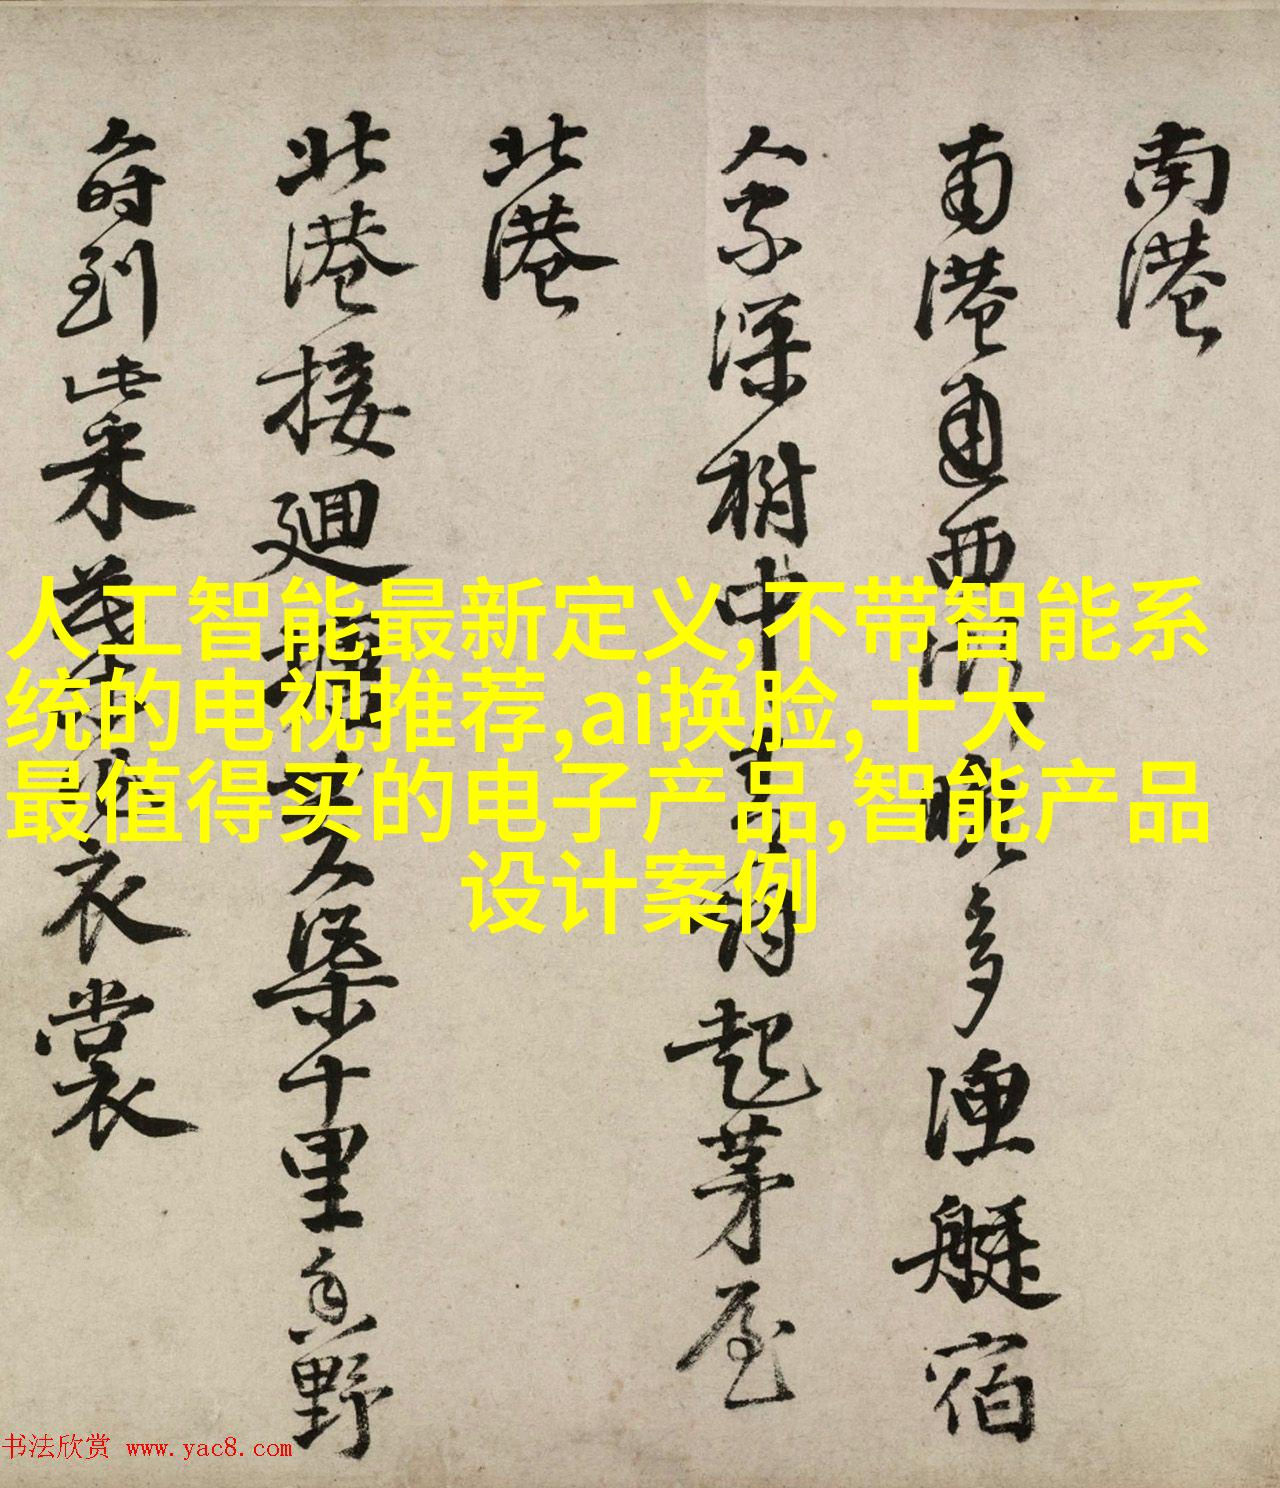 南港
南港通西湖晚多漁艇宿
人家深樹中起茅屋
北港
北港接迴塘芙渠十里香野
時到此采衣裳
人工智能最新定义,不带智能系
统的电视推荐,ai换脸,十大
最值得买的电子产品,智能产品
设计案例
书法欣赏 www.yac8.com